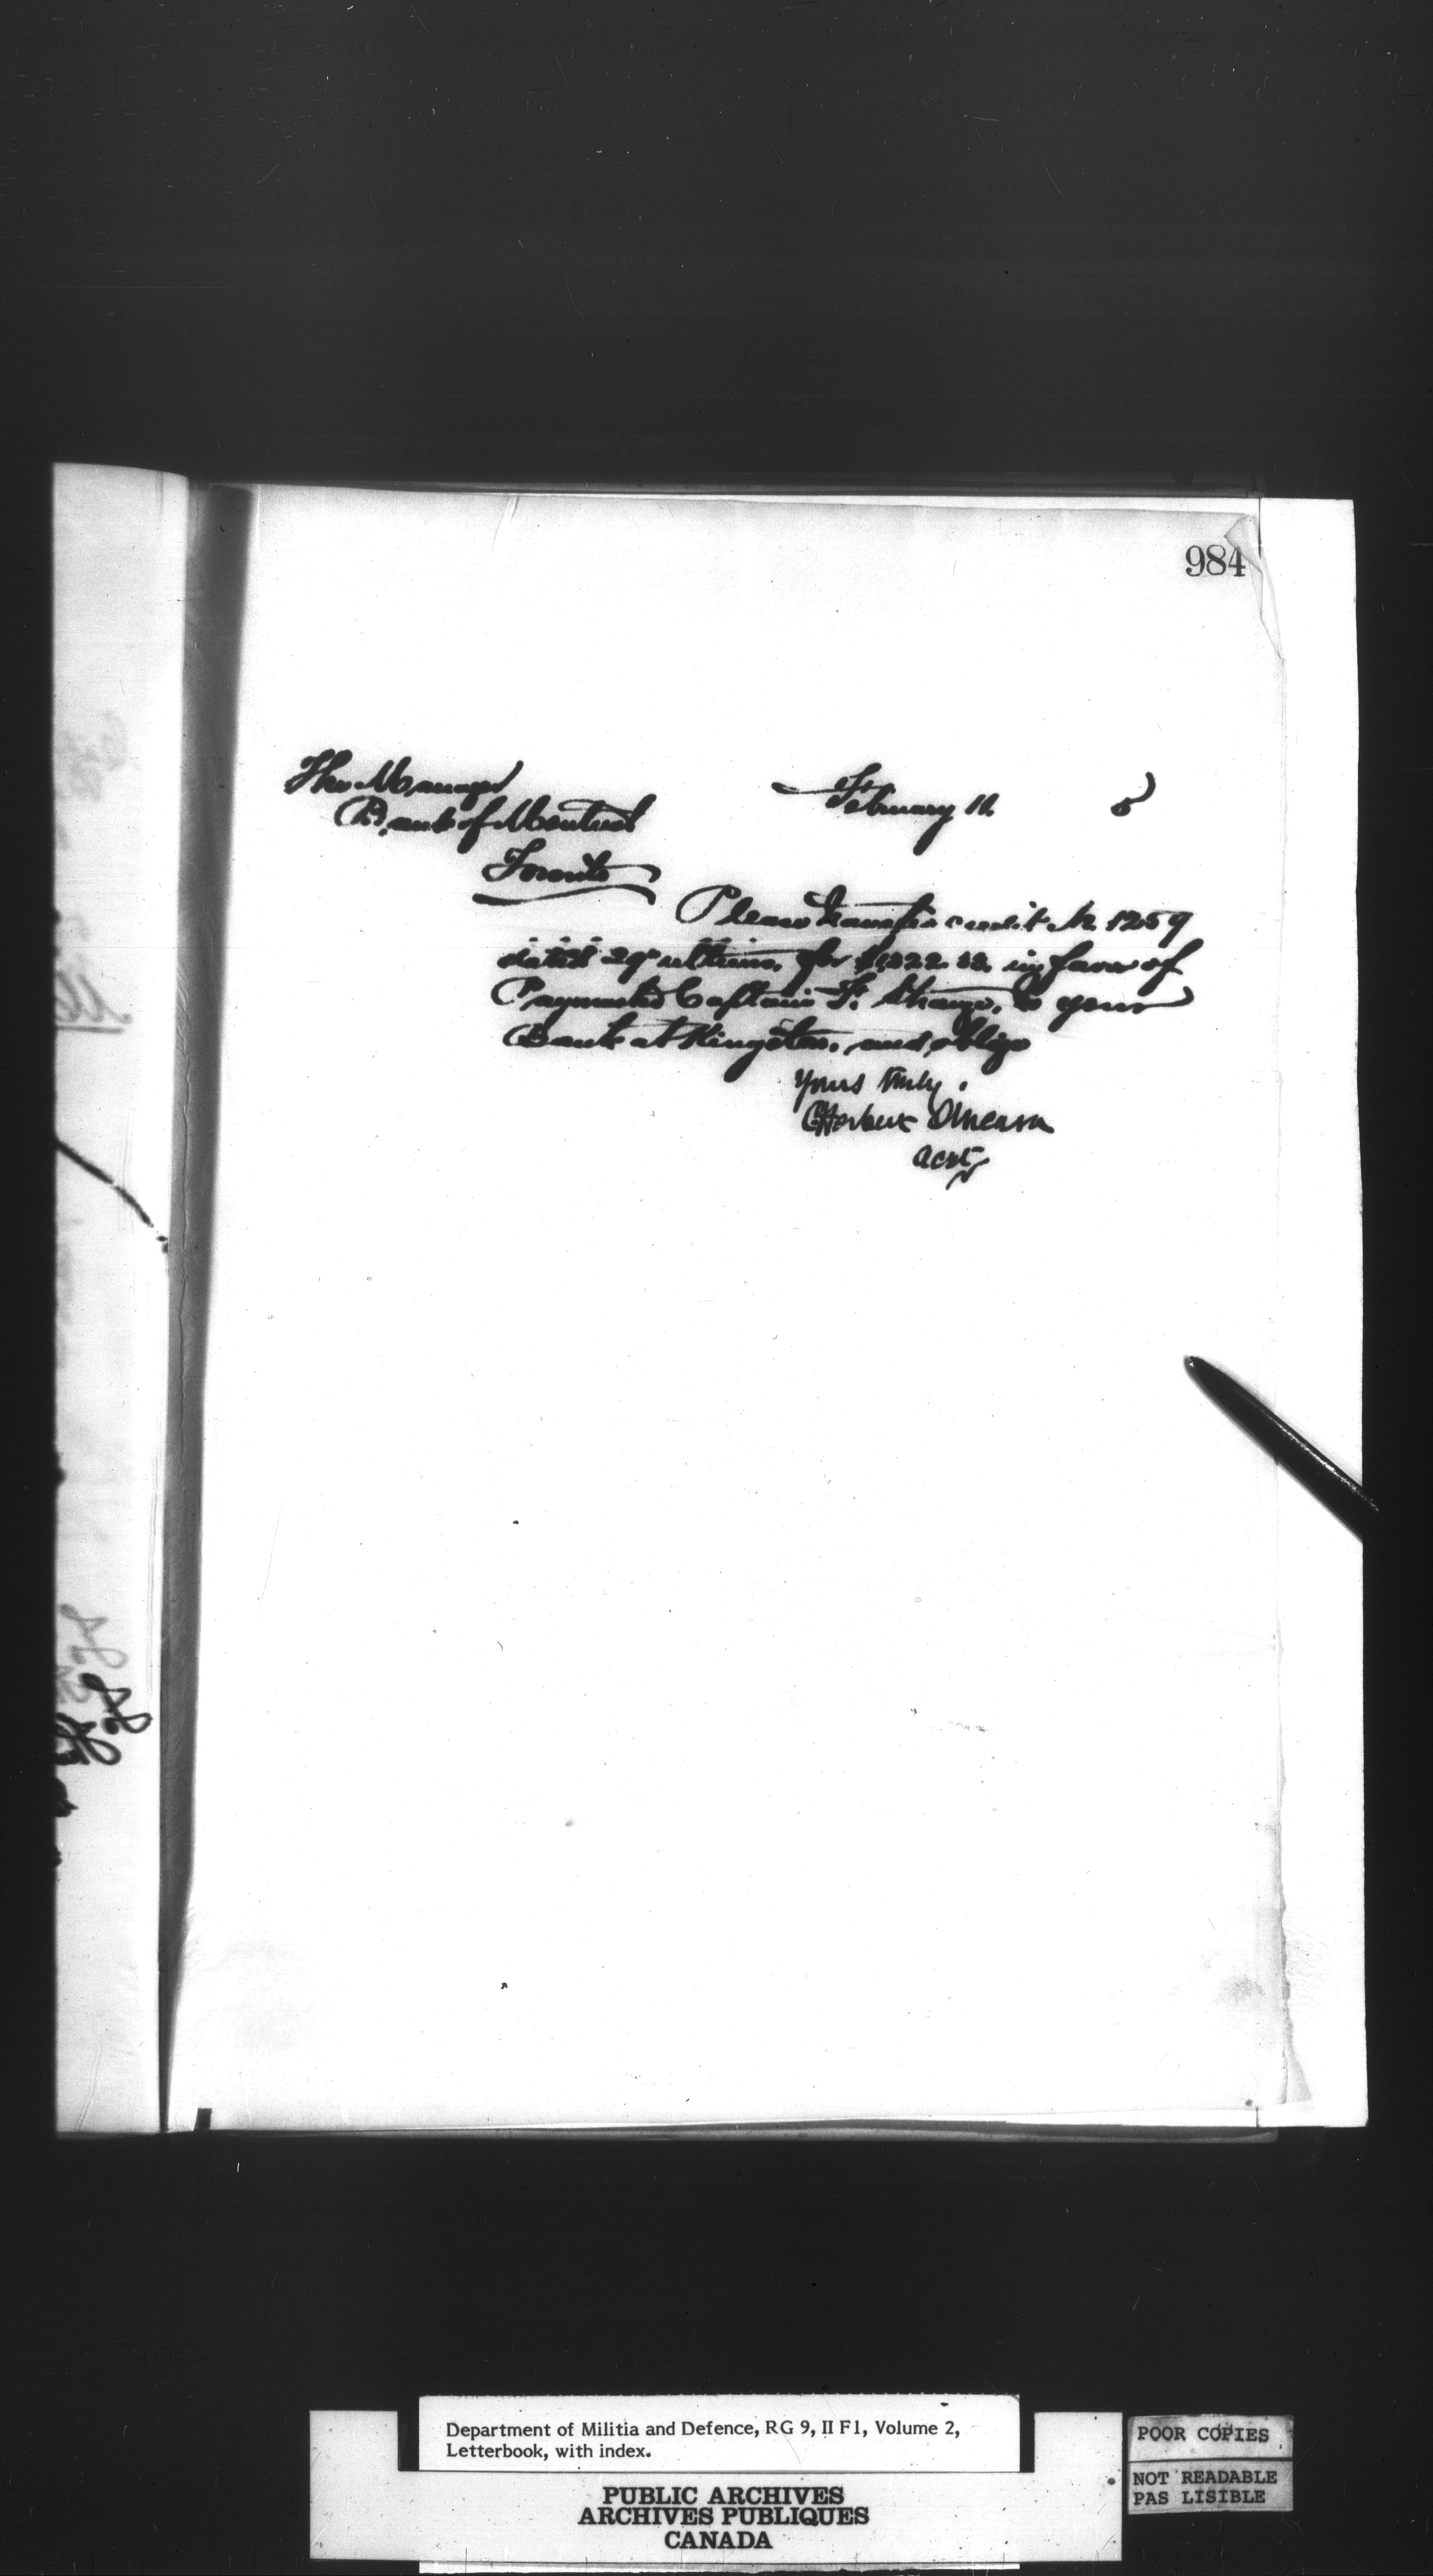 984
The Manager
February 11 5
Bank of Montreal
Toronto
Please transfer credit No. 1259
dated 29th ultimo, for in favor of
Paymaster Captain F. Strange, to your
Bank at Kingston, and oblige
Yours truly.
C Herbert O'Meara
acct
Department of Militia and Defence, RG 9, II F1, Volume 2,
Letterbook, with index.
PUBLIC ARCHIVES
ARCHIVES PUBLIQUES
CANADA
POOR COPIES
NOT READABLE
PAS LISIBLE